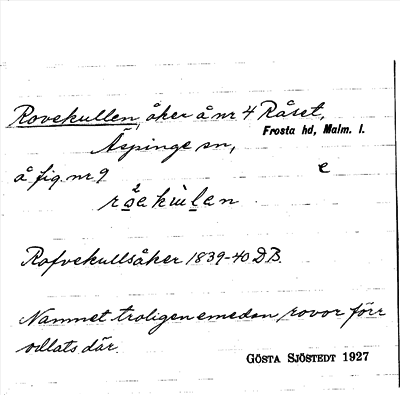 Rovekullen, åker å nr 4 Råset,
Frosta hd, Malm. l.
Äspinge sn,
å fig. nr 9
e
Rofvekullsåker 1839-40 DB.
Namnet troligen emedan rovor förr
odlats där.
GÖSTA SJÖSTEDT 1927